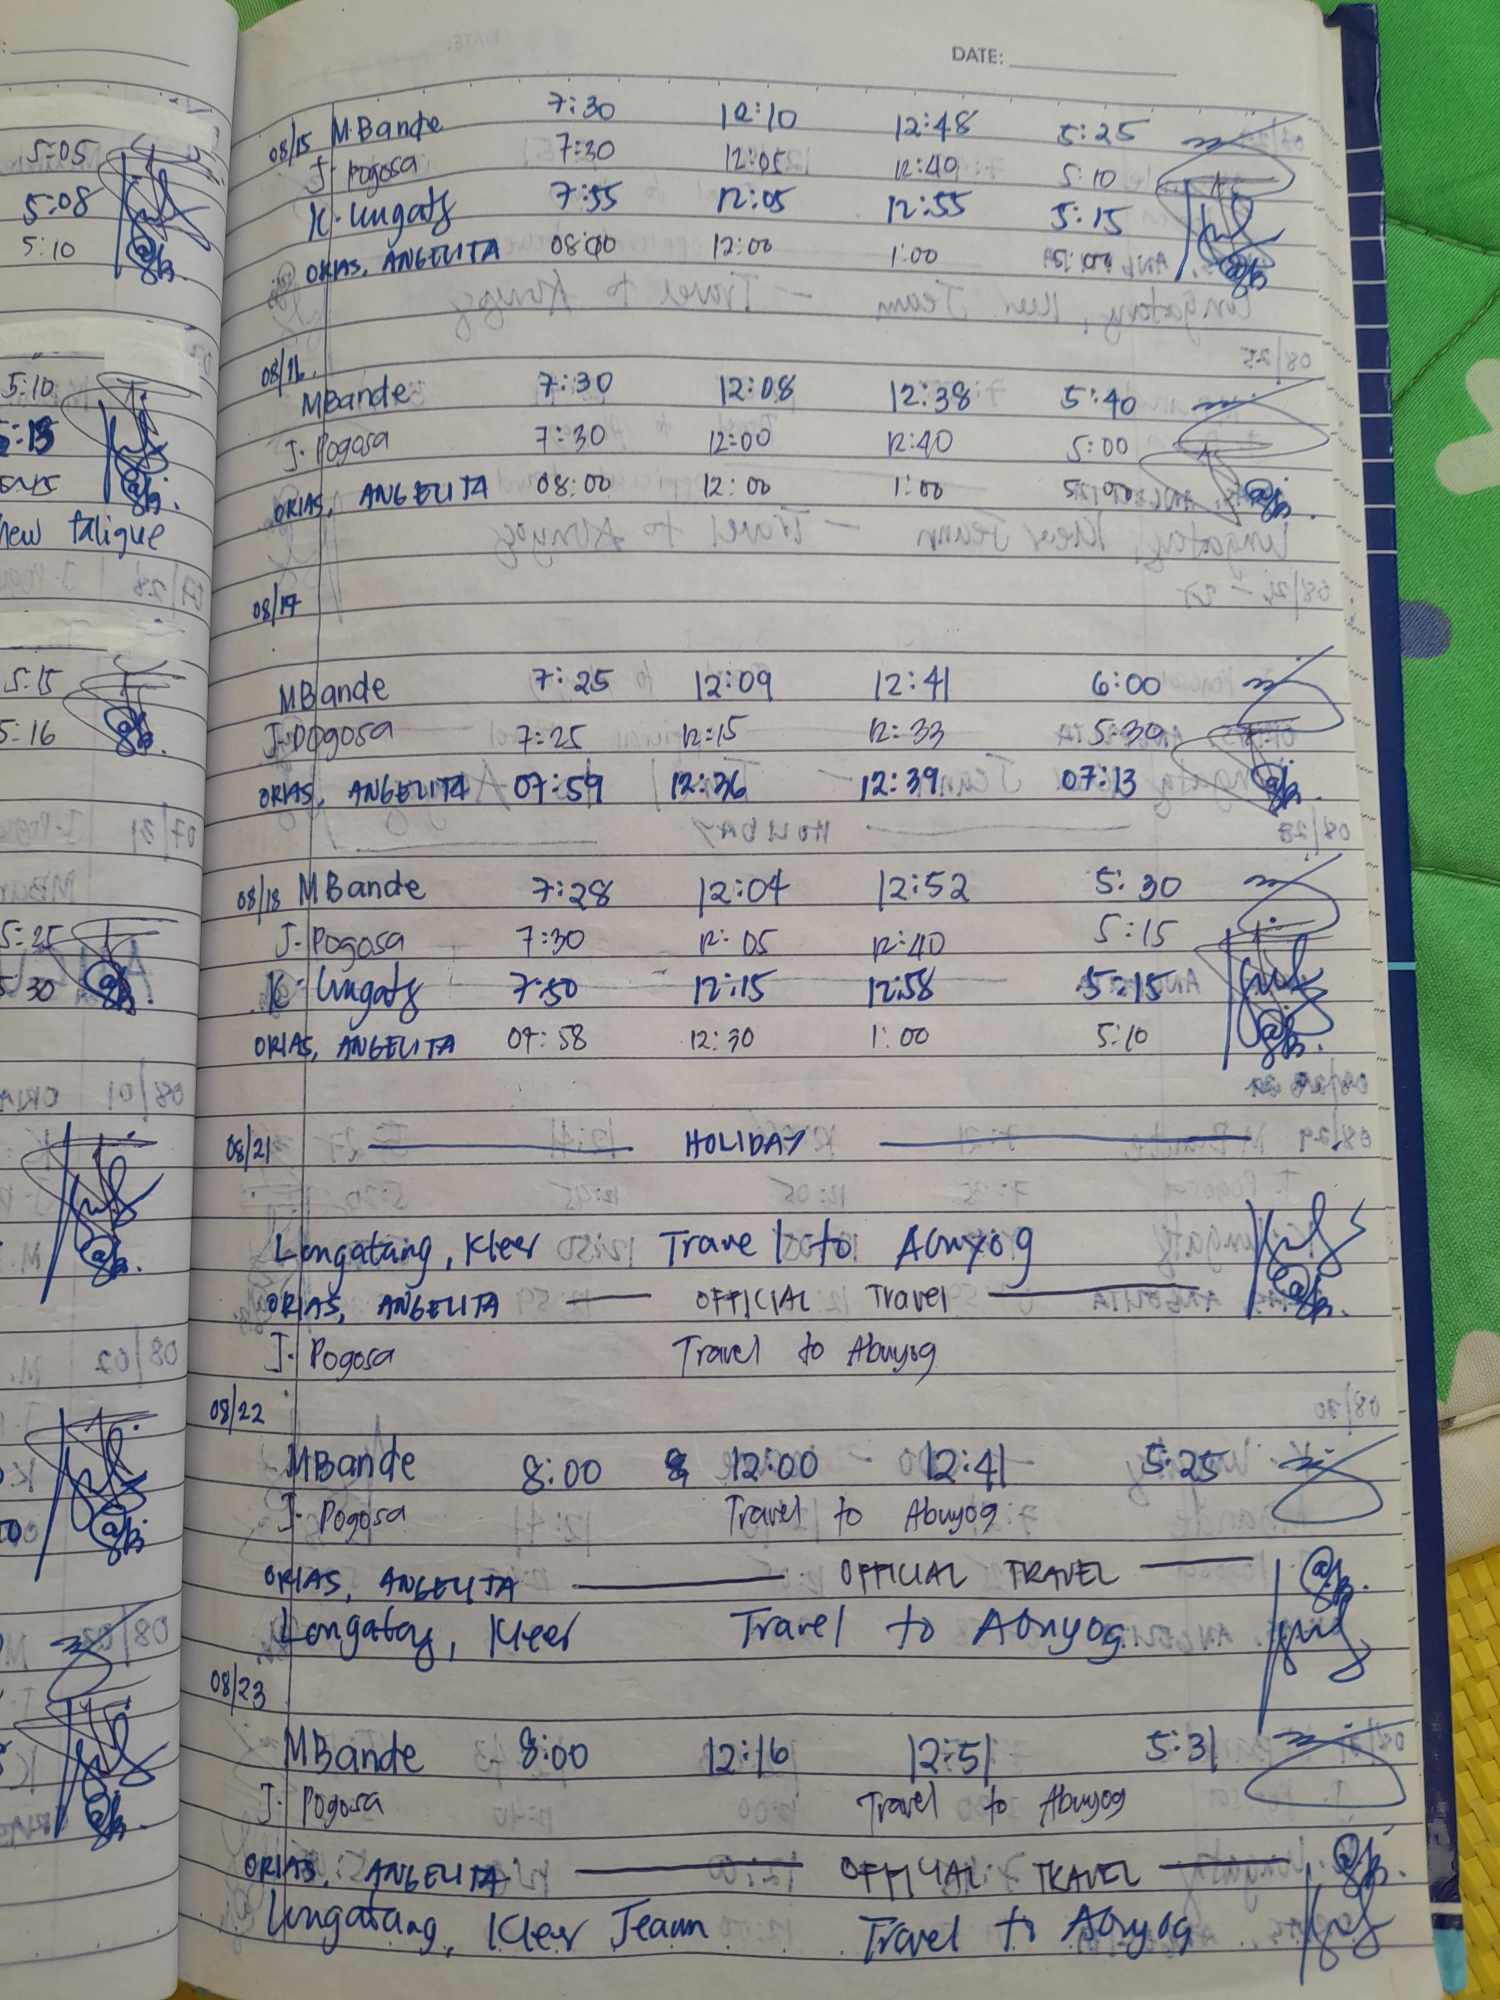 DATE:
08/15 M.Bande 7:30 12:10 12:48 5:25
J. Pogosa 7:30 12:05 12:40 5:10
K. 7:55 12:05 12:55 5:15
ORIAS, ANGELITA 08:00 12:00 1:00 05:00
08/16
MBande 7:30 12:08 12:38 5:40
J. Pogosa 7:30 12:00 12:40 5:00
ORIAS, ANGELITA 08:00 12:00 1:00 5:00
08/17
MBande 7:25 12:09 12:41 6:00
J. Pogosa 7:25 12:15 12:33 5:30
ORIAS, ANGELITA 07:59 12:36 12:39 07:13
08/18 MBande 7:28 12:04 12:52 5:30
J. Pogosa 7:30 12:05 12:40 5:15
K. 7:50 12:15 12:58 5:15
ORIAS, ANGELITA 07:58 12:30 1:00 5:10
08/21 HOLIDAY
Longatang, Kleer Travel to Abuyog
ORIAS, ANGELITA OFFICIAL Travel
J. Pogosa Travel to Abuyog
08/22
MBande 8:00 12:00 12:41 5:25
J. Pogosa Travel to Abuyog
ORIAS, ANGELITA OFFICIAL TRAVEL
Kleer Travel to Abuyog
08/23
MBande 8:00 12:16 12:51 5:31
J. Pogosa Travel to Abuyog
ORIAS, ANGELITA OFFICIAL TRAVEL
Longatang, Kleer Travel to Abuyog
5:05
5:08
5:10
5:10
5:15
fatigue
5:15
5:16
5:25
5:30